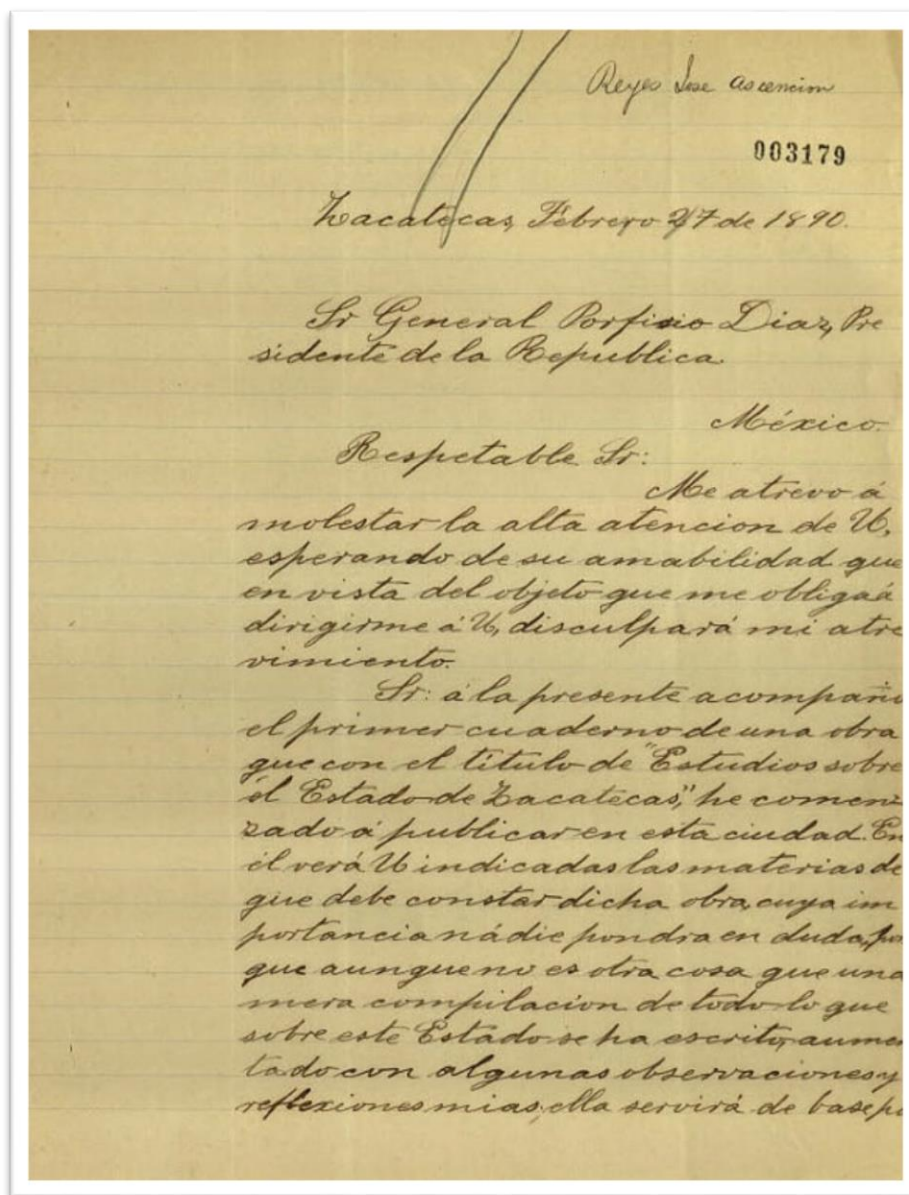 Reyes Jose Ascencion
003179
Zacatecas, Febrero 27 de 1890.
Sr General Porfirio Diaz, Pre
sidente de la Republica.
México.
Respetable Sr:
Me atrevo á
molestar la alta atencion de U,
esperando de su amabilidad que
en vista del objeto que me obliga á
dirigirme á U, disculpará mi atre
vimiento.
Sr: á la presente acompaño
el primer cuaderno de una obra
que con el título de "Estudios sobre
el Estado de Zacatecas," he comen
zado á publicar en esta ciudad. En
él verá U indicadas las materias de
que debe constar dicha obra, cuya im
portancia nádie pondra en duda, por
que aunque no es otra cosa que una
mera compilacion de todo lo que
sobre este Estado se ha escrito, aumen
tado con algunas observaciones y
reflexiones mias, ella servirá de base